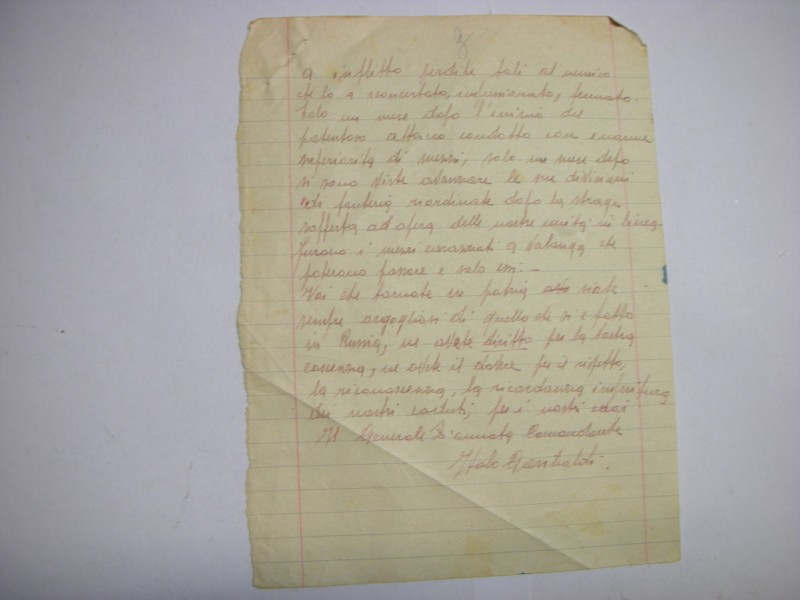 3
a inflitto perdite tali al nemico
che lo a sconcertato, confusionato, fermato.
Solo un mese dopo l'inizio del
potentoso attacco condotto con enorme
superiorità di mezzi, solo un mese dopo
si sono viste avanzare le sue divisioni
di fanteria riordinate dopo la strage
sofferta ad opera delle nostre unità in linea.
Furono i mezzi corazzati a valanga che
poterono passare e solo essi.—
Voi che tornate in patria siate
sempre orgogliosi di quello che si è fatto
in Russia, ne avete diritto per la vostra
coscienza, ne avete il dovere per il rispetto,
la riconoscenza, la ricordanza imperitura
dei nostri caduti, per i nostri eroi
Il Generale D'armata Comandante
Italo Gariboldi.